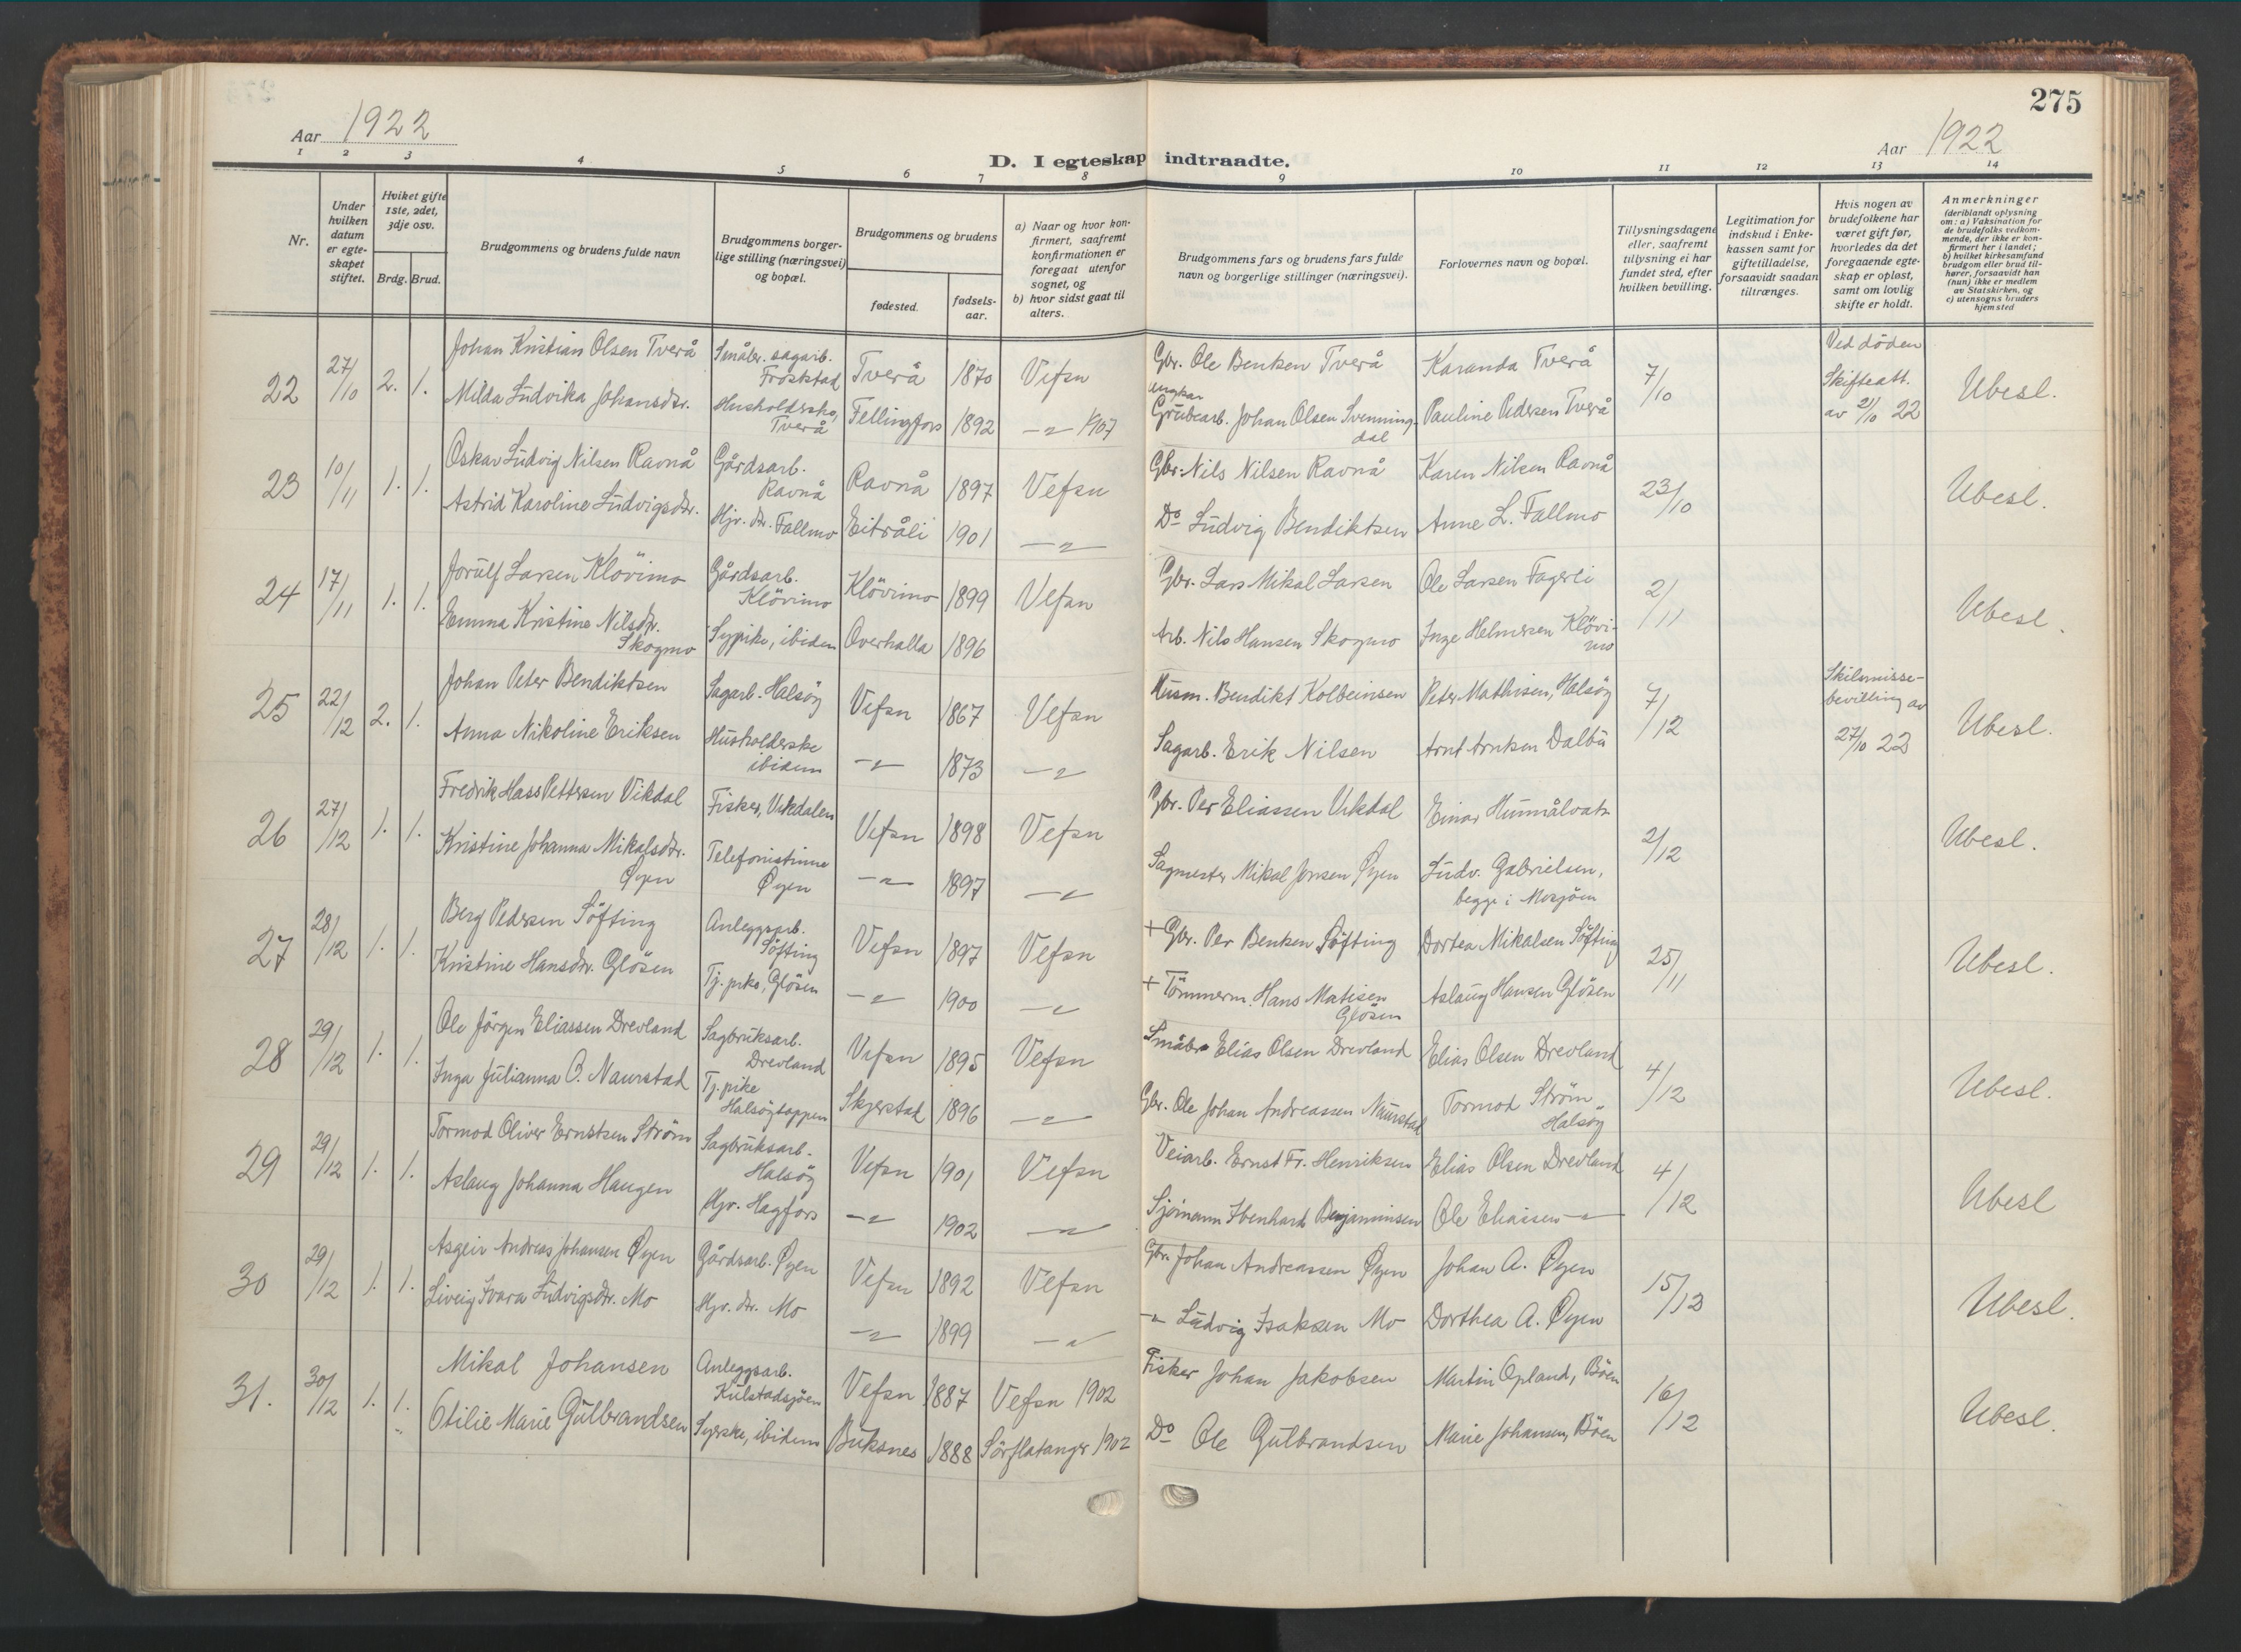 275
Aar 1922
Aar 1922
D. I egteskap indtraadte.
1 2 3 4 5 6 7 8 9 10 11 12 13 14
Nr.
Under hvilken datum er egteskapet stiftet.
Hvilket gifte 1ste, 2det, 3dje osv.
Brdg. Brud.
Brudgommens og brudens fulde navn
Brudgommens borgerlige stilling (næringsvei) og bopæl.
Brudgommens og brudens
fødested.
fødselsaar.
a) Naar og hvor konfirmert, saafremt konfirmationen er foregaat utenfor sognet, og
b) hvor sidst gaat til alters.
Brudgommens fars og brudens fars fulde navn og borgerlige stillinger (næringsvei).
Forlovernes navn og bopæl.
Tillysningsdagene eller, saafremt tillysning ei har fundet sted, efter hvilken bevilling.
Legitimation for indskud i Enkekassen samt for giftetilladelse, forsaavidt saadan tiltrænges.
Hvis nogen av brudefolkene har været gift før, hvorledes da det foregaaende egteskap er opløst, samt om lovlig skifte er holdt.
Anmerkninger
(deriblandt oplysning om: a) Vaksination for de brudefolks vedkommende, der ikke er konfirmert her i landet; b) hvilket kirkesamfund brudgom eller brud tilhører, forsaavidt han (hun) ikke er medlem av Statskirken, og c) utensogns bruders hjemsted
22 27/10 2. 1. Johan Kristian Olsen Tverå Småbr. sagarb. Tverå 1870 Vefsn Gbr. Ole Bentsen Tverå Karanda Tverå 7/10 Ved döden Skifteatt. av 21/10 22 Ubesl.
Milda Ludvika Johansdtr. Husholderske, Tverå Fellingfors 1892 -"- 1907 Grubearb. Johan Olsen Svenningdal Pauline Pedersen Tverå
23 10/11 1. 1. Oskar Ludvig Nilsen Ravnå Gårdsarb. Ravnå Ravnå 1897 Vefsn Gbr. Nils Nilsen Ravnå Karen Nilsen Ravnå 23/10 Ubesl.
Astrid Karoline Ludvigsdtr. Hjv. dtr. Fallmo Eitråli 1901 -"- Do Ludvig Bendiktsen Anne L. Fallmo
24 17/11 1. 1. Jorulf Larsen Klövimo Gårdsarb. Klövimo Klövimo 1899 Vefsn Gbr. Lars Mikal Larsen Ole Larsen Fagerli 2/11 Ubesl.
Emma Kristine Nilsdtr. Skogmo Sypike, ibidem Overhalla 1896 Arb. Nils Hansen Skogmo Inge Helmersen Klövimo
25 22/12 2. 1. Johan Peter Bendiktsen Sagarb. Halsöy Vefsn 1867 Vefsn Husm. Bendikt Kolbeinsen Peter Mathisen, Halsöy 7/12 Skilsmissebevilling av 27/10 22 Ubesl.
Anna Nikoline Eriksen Husholderske ibidem -"- 1873 -"- Sagarb. Erik Nilsen Arnt Arntsen Dalbu
26 27/12 1. 1. Fredrik Hass Pettersen Vikdal Fisker, Vikdalen Vefsn 1898 Vefsn Gbr. Per Eliassen Vikdal Einar Hunnålvatn 2/12 Ubesl.
Kristine Johanna Mikalsdtr. Øyen Telefonistinne Øyen -"- 1897 -"- Sagmester Mikal Jensen Øyen Ludv. Gabrielsen, begge i Mosjöen
27 28/12 1. 1. Berg Pedersen Söfting Anleggsarb. Söfting Vefsn 1897 Vefsn + Gbr. Per Bentsen Söfting Dortea Mikalsen Söfting 25/11 Ubesl.
Kristine Hansdtr. Glösen Tj. pike, Glösen -"- 1900 -"- + Tömmerm. Hans Matisen Glösen Aslaug Hansen Glösen
28 29/12 1. 1. Ole Jörgen Eliassen Drevland Sagbruksarb. Drevland Vefsn 1895 Vefsn Småbr. Elias Olsen Drevland Elias Olsen Drevland 4/12 Ubesl.
Inga Julianna O. Naurstad Tj. pike Halsöytoppen Skjerstad 1896 -"- Gbr. Ole Johan Andreassen Naurstad Tormod Ström Halsöy
29 29/12 1. 1. Tormod Oliver Ernstsen Ström Sagbruksarb. Halsöy Vefsn 1901 Vefsn Veiarb. Ernst Fr. Henriksen Elias Olsen Drevland 4/12 Ubesl
Aslaug Johanna Haugen Hjv. Hagfors -"- 1902 -"- Sjömann Ibenhard Benjaminsen Ole Eliassen -"-
30 29/12 1. 1. Asgeir Andreas Johansen Øyen Gårdsarb. Øyen Vefsn 1892 Vefsn Gbr. Johan Andreassen Øyen Johan A. Øyen 15/12 Ubesl.
Liveig Ivara Ludvigsdtr. Mo Hjv. dtr. Mo -"- 1899 -"- -"- Ludvig Isaksen Mo Dorthea A. Øyen
31. 30/12 1. 1. Mikal Johansen Anleggsarb. Kulstadsjöen Vefsn 1887 Vefsn 1902 Fisker Johan Jakobsen Martin Opland, Böen 16/12 Ubesl.
Otilie Marie Gulbrandsen Syerske, ibidem Buksnes 1888 Sörflatanger 1902 Do Ole Gulbrandsen Marie Johansen, Böen